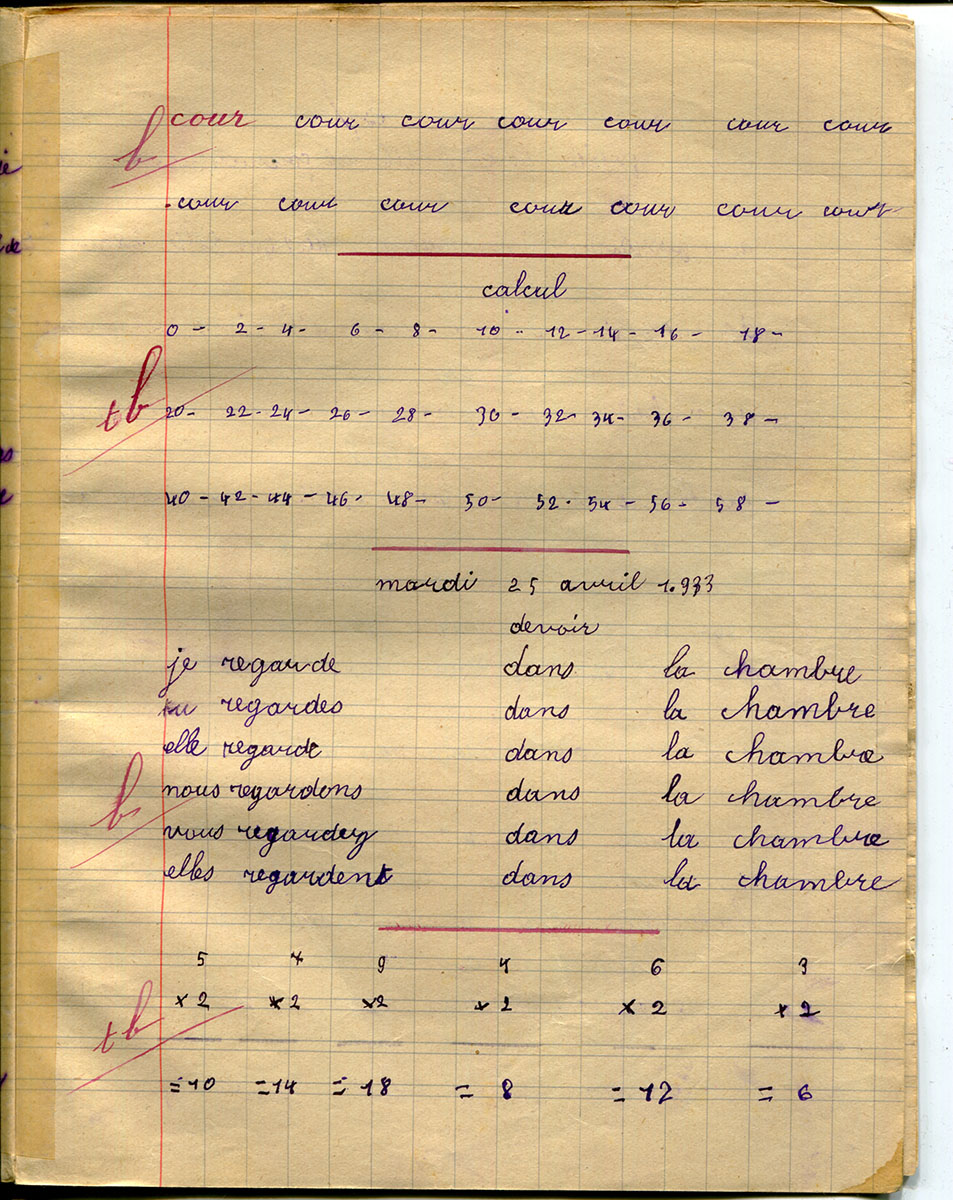 b cour cour cour cour cour cour cour
cour cour cour cour cour cour cour
calcul
0 - 2 - 4 - 6 - 8 - 10 - 12 - 14 - 16 - 18 -
tb 20 - 22 - 24 - 26 - 28 - 30 - 32 - 34 - 36 - 38 -
40 - 42 - 44 - 46 - 48 - 50 - 52 - 54 - 56 - 58 -
mardi 25 avril 1.933
devoir
je regarde dans la chambre
tu regardes dans la chambre
elle regarde dans la chambre
nous regardons dans la chambre
b
vous regardez dans la chambre
elles regardent dans la chambre
5 7 9 4 6 3
tb × 2 × 2 × 2 × 2 × 2 × 2
= 10 = 14 = 18 = 8 = 12 = 6